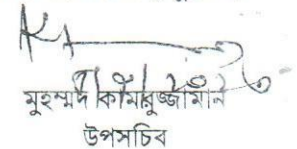 মুহম্মদ কামারুজ্জামান
উপসচিব